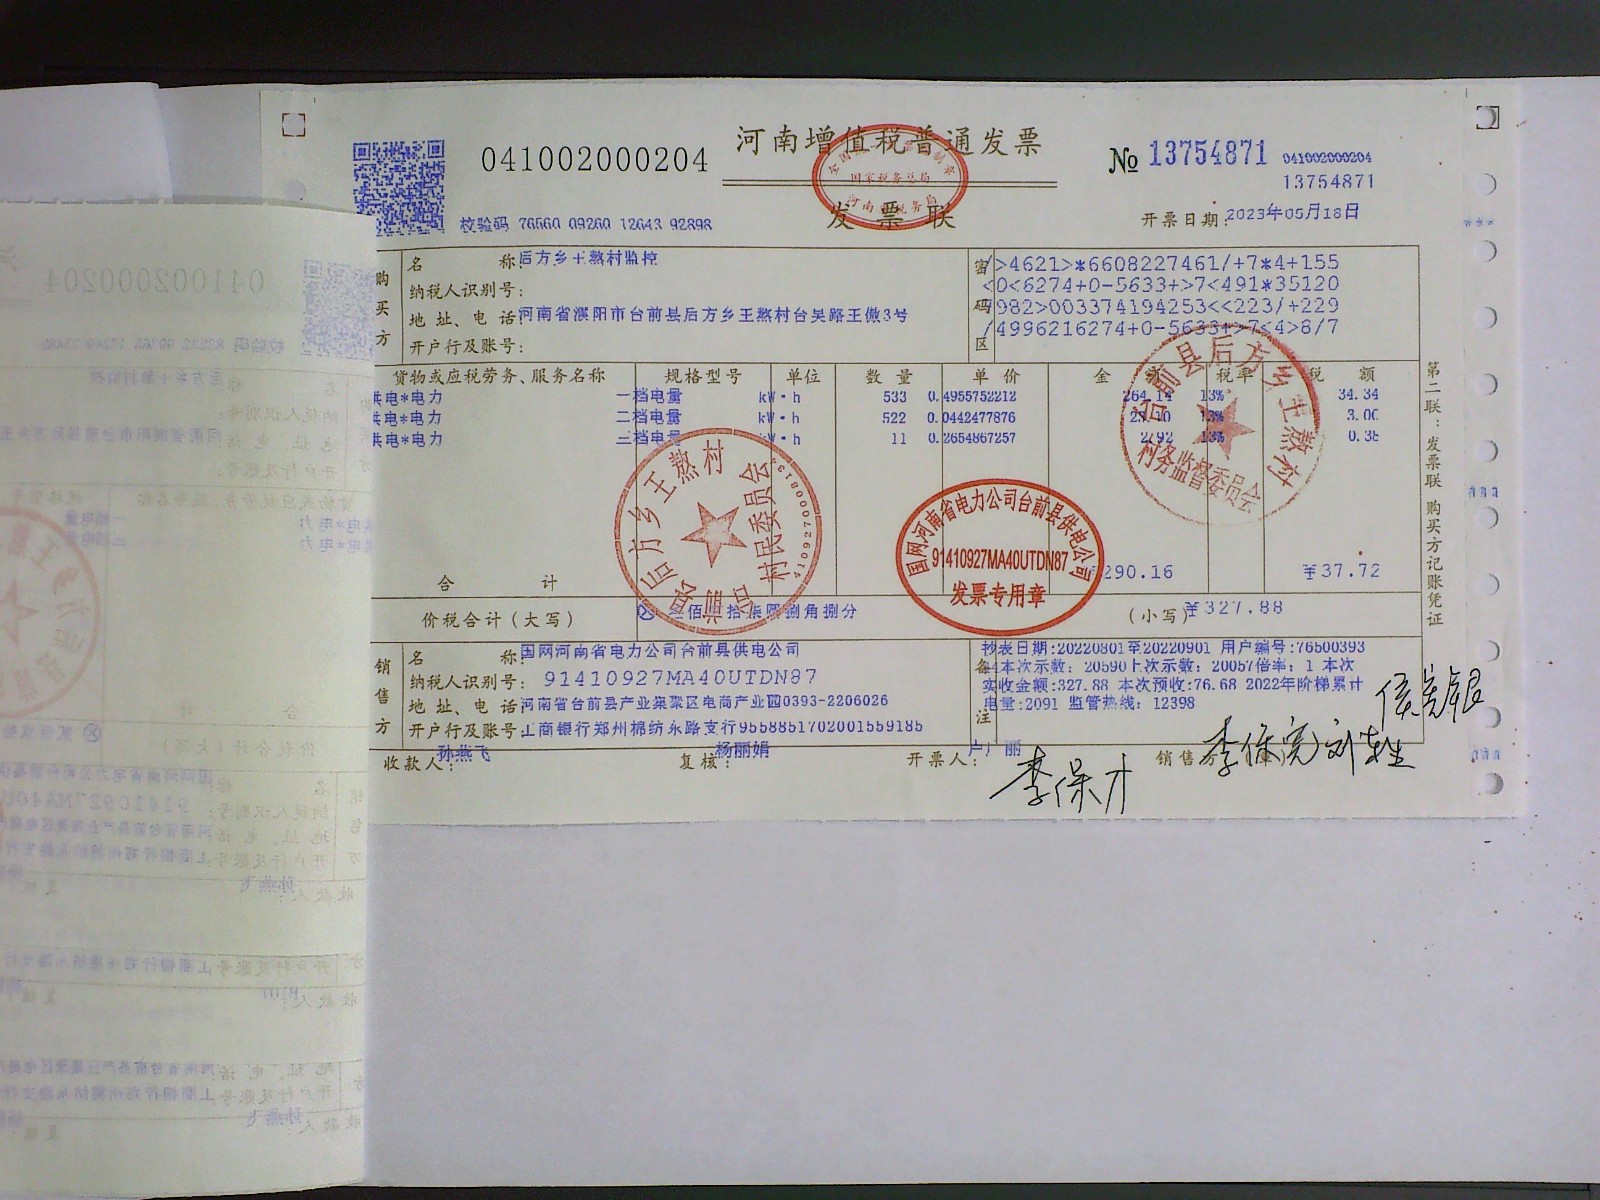 河南增值税普通发票
041002000204
№ 13754871
041002000204
13754871
发票联
校验码 76560 09260 12643 92898
开票日期:2023年05月18日
购买方
名 称:后方乡王熬村监控
纳税人识别号:
地址、电话:河南省濮阳市台前县后方乡王熬村台吴路王傲3号
开户行及账号:
密码区
/>4621>*6608227461/+7*4+155
<0<6274+0-5633+>7<491*35120
982>003374194253<<223/+229
/4996216274+0-5633+>7<4>8/7
货物或应税劳务、服务名称 规格型号 单位 数量 单价 金额 税率 税额
供电*电力 一档电量 kW·h 533 0.4955752212 264.14 13% 34.34
供电*电力 二档电量 kW·h 522 0.0442477876 13% 3.00
供电*电力 三档电量 kW·h 11 0.2654867257 2.92 13% 0.38
合计 290.16 ¥37.72
价税合计(大写) 拾柒圆捌角捌分 (小写)¥327.88
销售方
名 称:国网河南省电力公司台前县供电公司
纳税人识别号:91410927MA40UTDN87
地址、电话:河南省台前县产业集聚区电商产业园0393-2206026
开户行及账号:工商银行郑州棉纺东路支行9558851702001559185
备注
抄表日期:20220801至20220901 用户编号:76500393
本次示数:20590上次示数:20057倍率:1 本次
实收金额:327.88 本次预收:76.68 2022年阶梯累计
电量:2091 监管热线:12398
收款人:孙燕飞 复核:杨丽娟 开票人: 丽 销售方:(章)
第二联:发票联 购买方记账凭证
国家税务总局
台前县后方乡王熬村
村民委员会
4109270008
国网河南省电力公司台前县供电公司
91410927MA40UTDN87
发票专用章
台前县后方乡王熬村
村务监督委员会
李保才